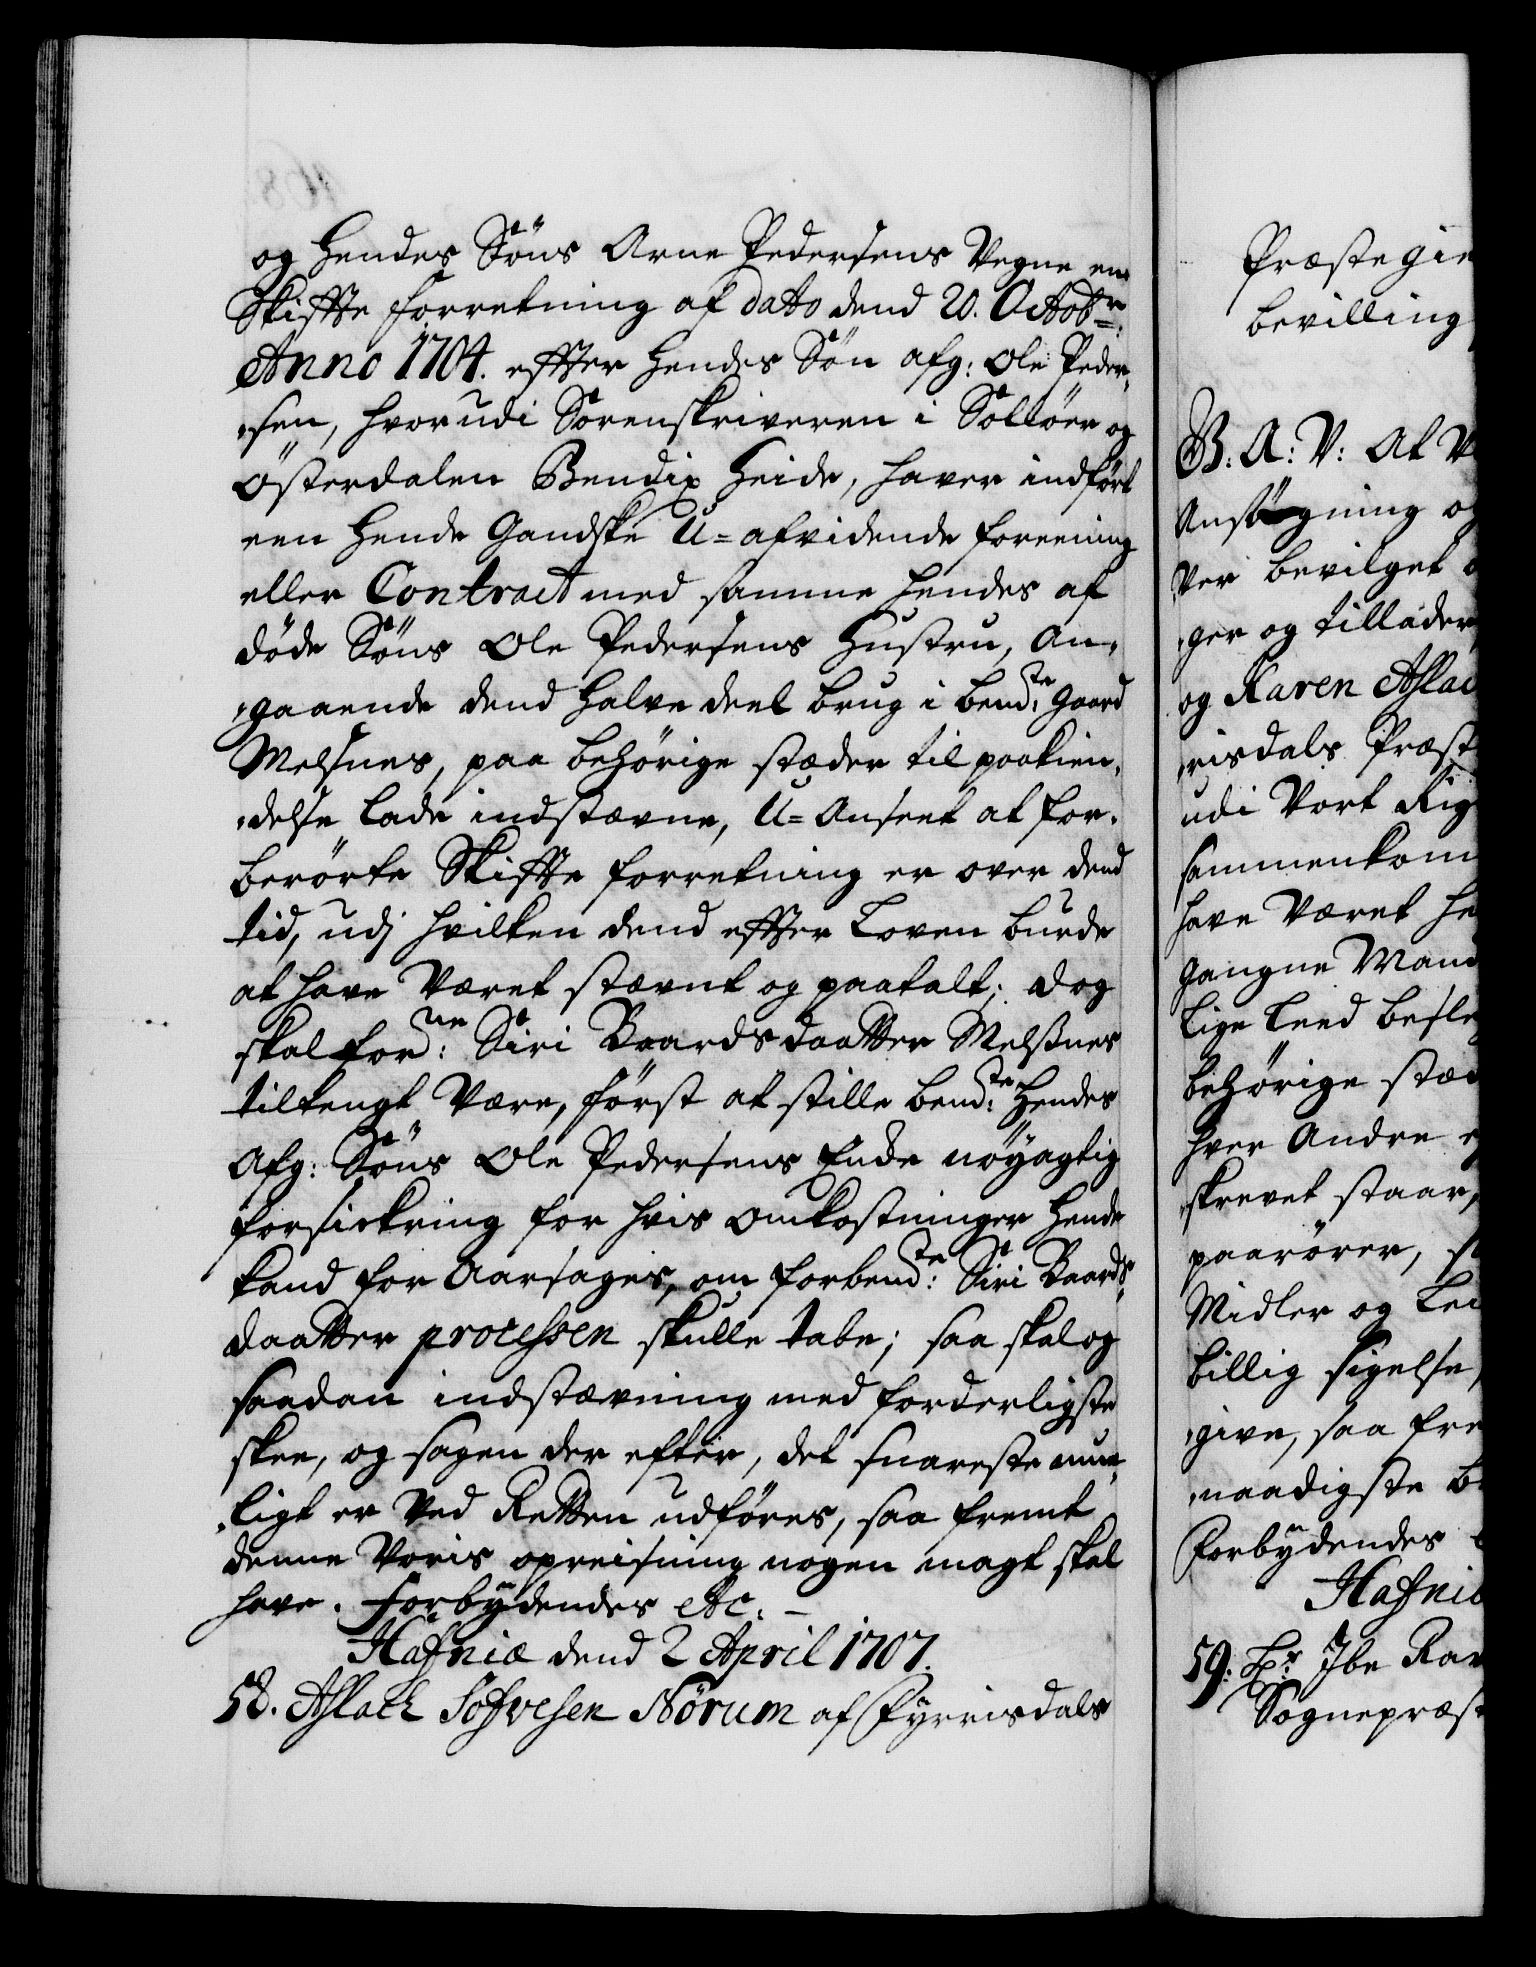 og Hendes Søns Arne Pedersens Vegne en
Skiffte forretning af dato dend 20. Octobr:
Anno 1704. effter Hendes Søn afg: Ole Peder-
-sen, hvorudi Sorenskriveren i Solløer og
Österdalen Bendix Heide, haver indført
een Hende Gandske U=afvidende foreening
eller Contract med samme hendes af
døde Søns Ole Pedersens Hustru, An-
-gaaende dend halve deel brug i bemd:te Gaard
Melsnes, paa behörige stæder til paakien-
-delse lade indstævne, U=Anseet at for-
berörte Skiffte forretning er over dend
tid, udj hvilken dend effter Loven burde
at have Været stævnt og paatalt; dog
skal for:ne Siri Baards daatter Melsnes
tiltengt Være, først at stille bemd:te Hendes
Afg: Søns Ole Pedersens Encke nöyagtig
forsickring for hvis omkostninger Hende
kand for Aarsages, om forbemd:te Siri Baards-
daatter processen skulle tabe; saa skal og
saadan indstævning med forderligste
skee, og sagen der efter, det snareste mue-
-ligt er Ved Retten udföres, saa fremt
denne Voris opreisning nogen magt skal
have. Forbydendes etc. –
Hafniæ dend 2 April 1707.
58. Aslack Sofvesen Nørum af Fyrrisdals
Præstegie
bevilling
B: A: V: At V
Ansøgning og
Ver bevilget o
-ger og tillader
og Karen Aslac
-risdals Præst
udi Vort Rig
sammenkom
have Været he
gangne Mand
Lige Leed besle
behörige stæd
hver Andre e
-skrevet staar,
paarörer, s
Midler og Lei
billig sigelse,
-give, saa fre
-naadigste be
Forbydendes e
Hafniæ
59: Hr Ibe Ran
Sognepræst